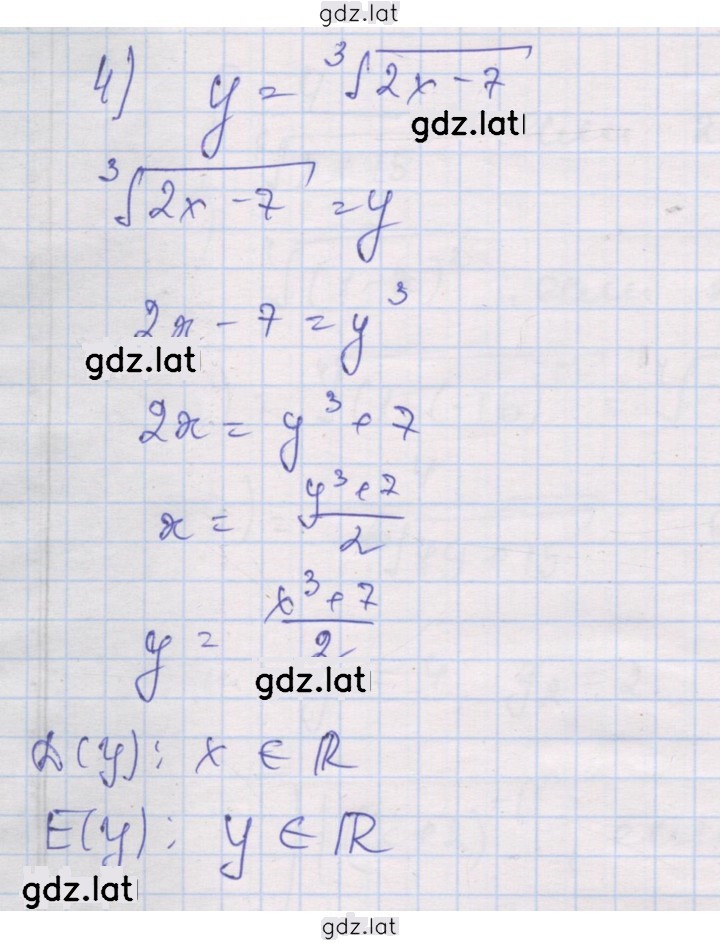 gdz.lat
4) y = ∛(2x - 7)
gdz.lat
∛(2x - 7) = y
2x - 7 = y³
gdz.lat
2x = y³ + 7
x = (y³ + 7)/2
y = (x³ + 7)/2
gdz.lat
D(y): x ∈ ℝ
E(y): y ∈ ℝ
gdz.lat
gdz.lat